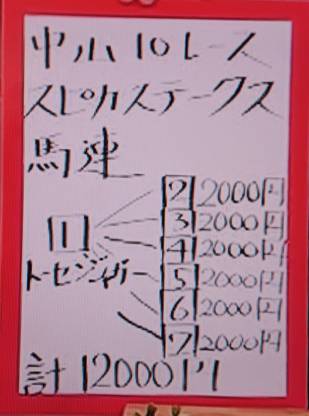 中山10レース
スピカステークス
馬連
2 2000円
3 2000円
1 4 2000円
トーセンジャガー 5 2000円
6 2000円
7 2000円
計12000円